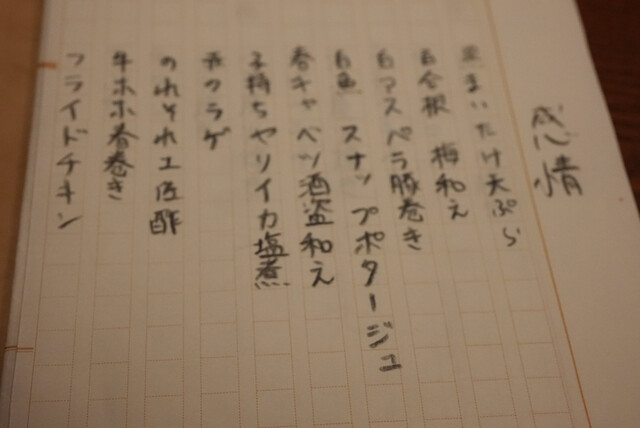 感情
黒まいたけ天ぷら
百合根 梅和え
白アスパラ豚巻き
白魚 スナップポタージュ
春キャベツ酒盗和え
子持ちヤリイカ塩煮
クラゲ
のれそれ土佐酢
牛ホホ春巻き
フライドチキン